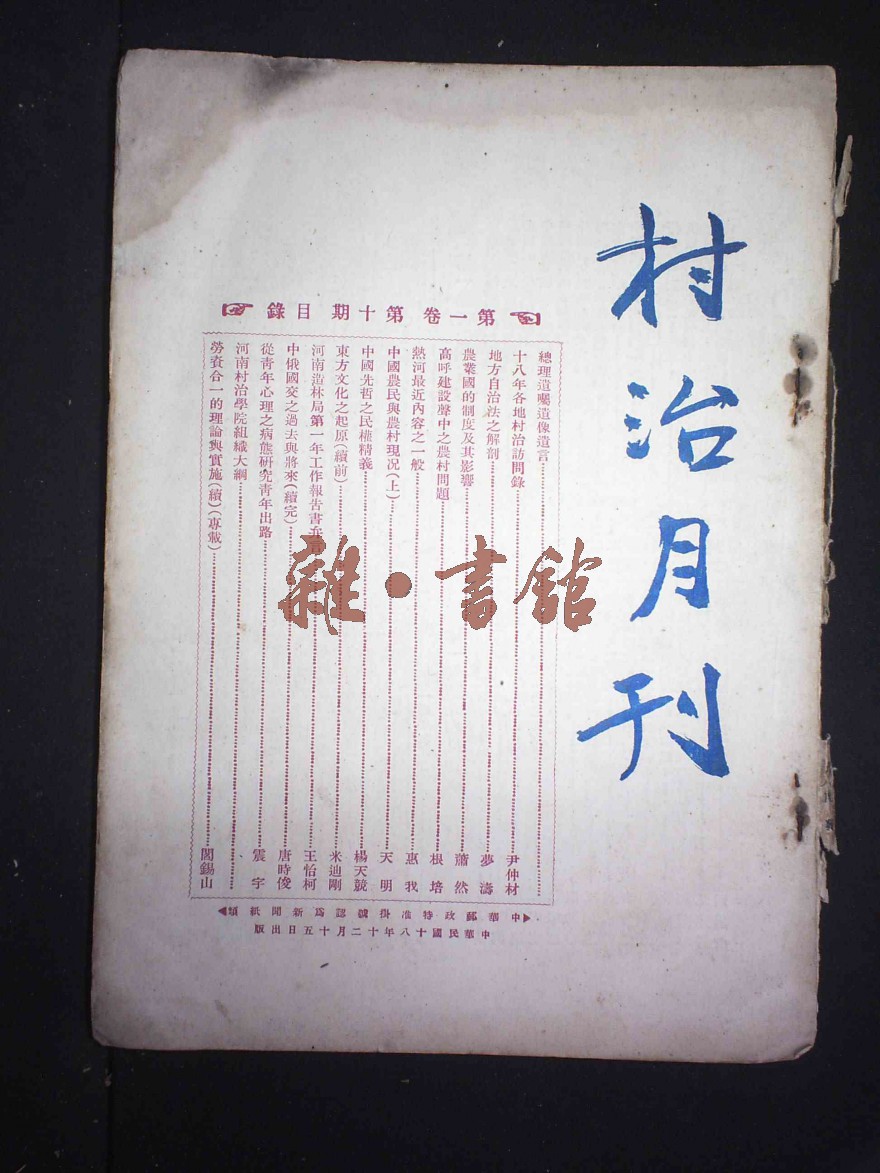 村治月刊
第一卷第十期目錄
總理遺囑遺像遺言
十八年各地村治訪問錄 尹仲材
地方自治法之解剖 夢濤
農業國的制度及其影響 蕭然
高呼建設聲中之農村問題 根培
熱河最近內容之一般 惠我
中國農民與農村現况(上) 天明
中國先哲之民權精義 楊天競
東方文化之起原(續前) 米迪剛
河南造林局第一年工作報告書弁言 王怡柯
中俄國交之過去與將來(續完) 唐時俊
從青年心理之病態研究青年出路 震宇
河南村治學院組織大綱
勞資合一的理論與實施(續)(專載) 閻錫山
中華郵政特准掛號認爲新聞紙類
中華民國十八年十二月十五日出版
雜·書舘